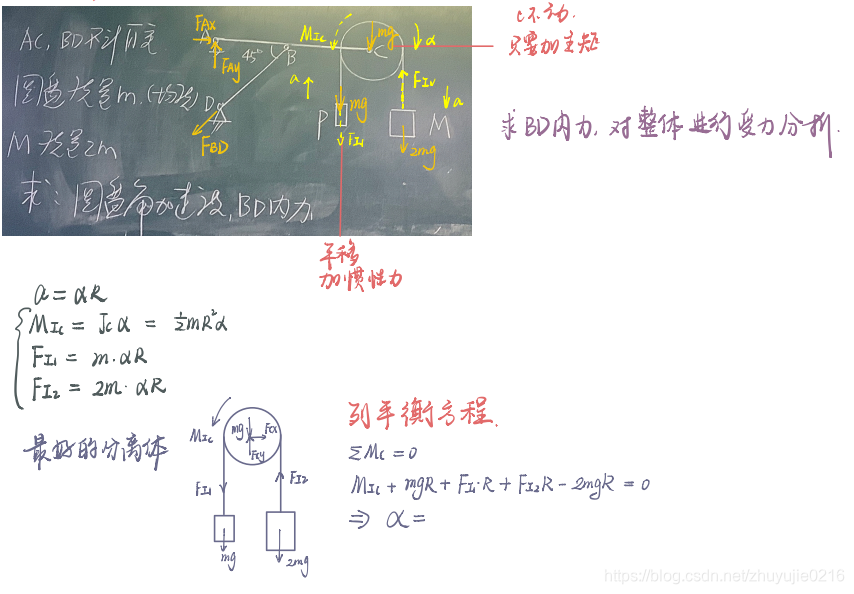 AC, BD不计自重
圆盘质量m.(均质)
M 质量2m
求: 圆盘角加速度, BD内力
FAx
A
FAy
45°
B
D
FBD
MIc
mg
C
α
a
P
mg
FI1
FI2
M
a
2mg
C不动.
只要加主矩
求BD内力, 对整体进行受力分析.
平移
加惯性力
a = αR
MIc = Jcα = ½mR²α
FI1 = m·αR
FI2 = 2m·αR
最好的分离体
MIc
mg
Fcx
Fcy
FI1
FI2
mg
2mg
列平衡方程.
ΣMc = 0
MIc + mgR + FI1·R + FI2R - 2mgR = 0
⇒ α =
https://blog.csdn.net/zhuyujie0216